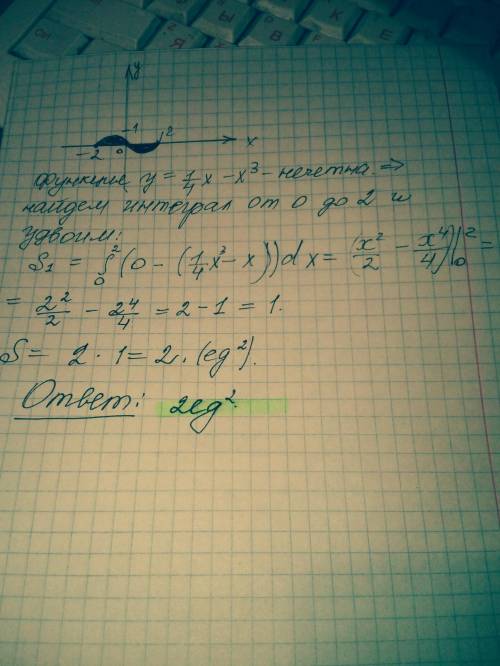 y
1
2
-2
0
x
функция y = 1/4 x - x³ - нечетна ⇒
найдем интеграл от 0 до 2 и
удвоим:
S₁ = ∫₀² (0 - (1/4 x³ - x)) dx = (x²/2 - x⁴/4)|₀² =
= 2²/2 - 2⁴/4 = 2 - 1 = 1.
S = 2 · 1 = 2. (ед²).
Ответ: 2ед².